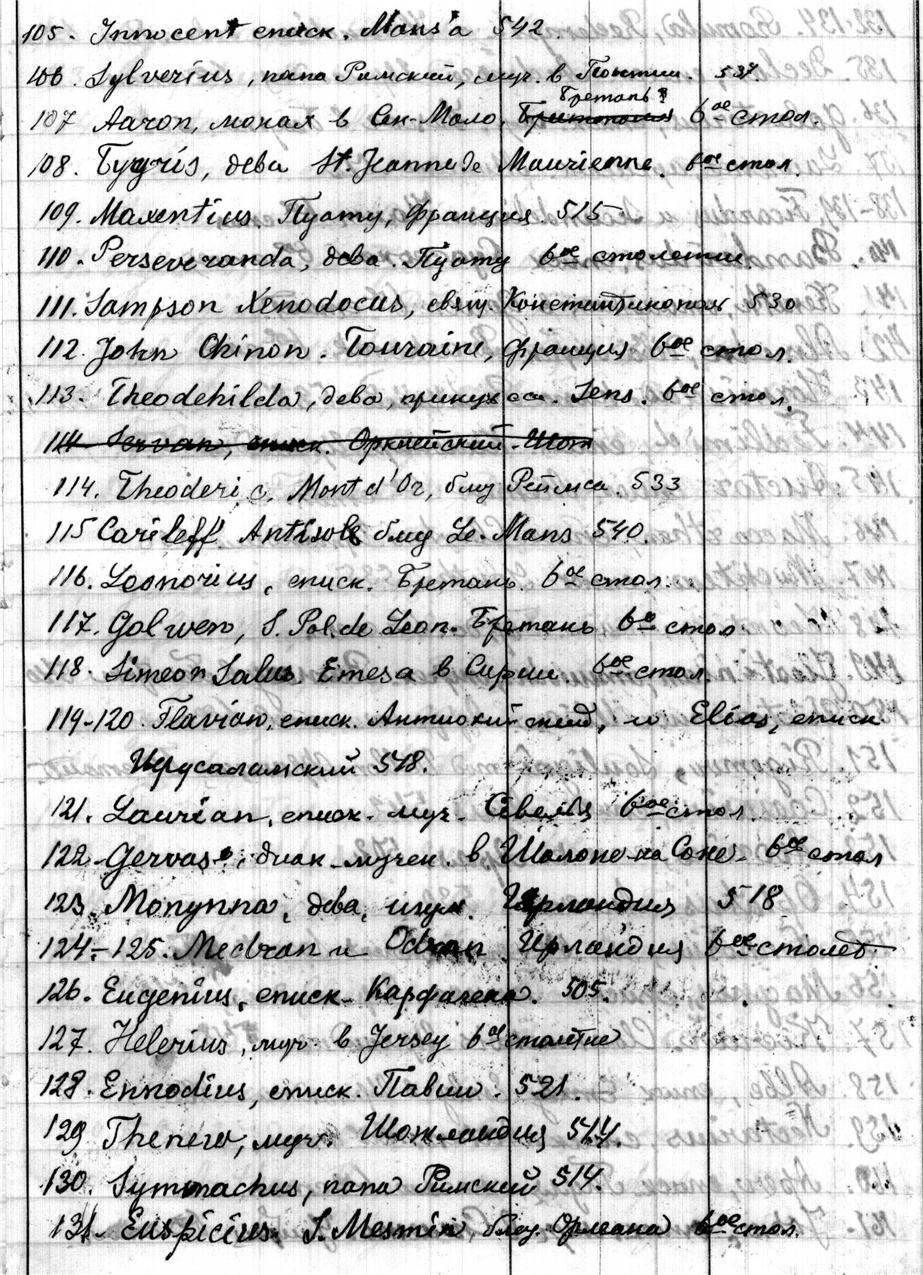 105. Innocent еписк. Mans'a 542
106. Sylverius, папа Римский, муч. в Понтии. 537
Бретань?
107 Aaron, монах в Сен-Мало, 6ое стол.
108. Tygris, дева St. Jeanne de Maurienne. 6ое стол.
109. Maxentius. Пуату, Франция. 515
110. Perseveranda, дева. Пуату 6ое столетие.
111. Sampson Xenodocus, свящ. Константинополь 530
112. John Chinon. Touraine, Франция 6ое стол.
113. Theodehilda, дева, принцесса. Sens. 6ое стол.
114 Servan, еписк. Оркнейский. Шот
114. Theoderic. Mont d'Or, близ Реймса. 533
115 Carileff Antisole близ Le-Mans 540.
116. Leonorius, еписк. Бретань. 6ое стол.
117. Golwen, S. Pol. de Leon. Бретань 6ое стол.
118. Simeon Salus. Emesa в Сирии. 6ое стол.
119-120. Flavian, еписк. Антиохий и Elias, еписк
Иерусалимский 518.
121. Laurian, еписк. муч. Севелья 6ое стол.
122. Gervase, диак. мучен. в Шалоне на Соне. 6ое стол
123. Monynna, дева, игум. Ирландия 518
124-125. Medran и Odran. Ирландия 6ое столет
126. Eugenius, еписк. Карфагена. 505.
127. Helerius, муч. в Jersey 6ое столетие
128. Ennodius, епиcк. Павии. 521.
129 Thenew, муч. Шотландия 514.
130. Symmachus, папа Римский 514.
131. Euspicius. S. Mesmin, близ. Орлеана 6ое стол.